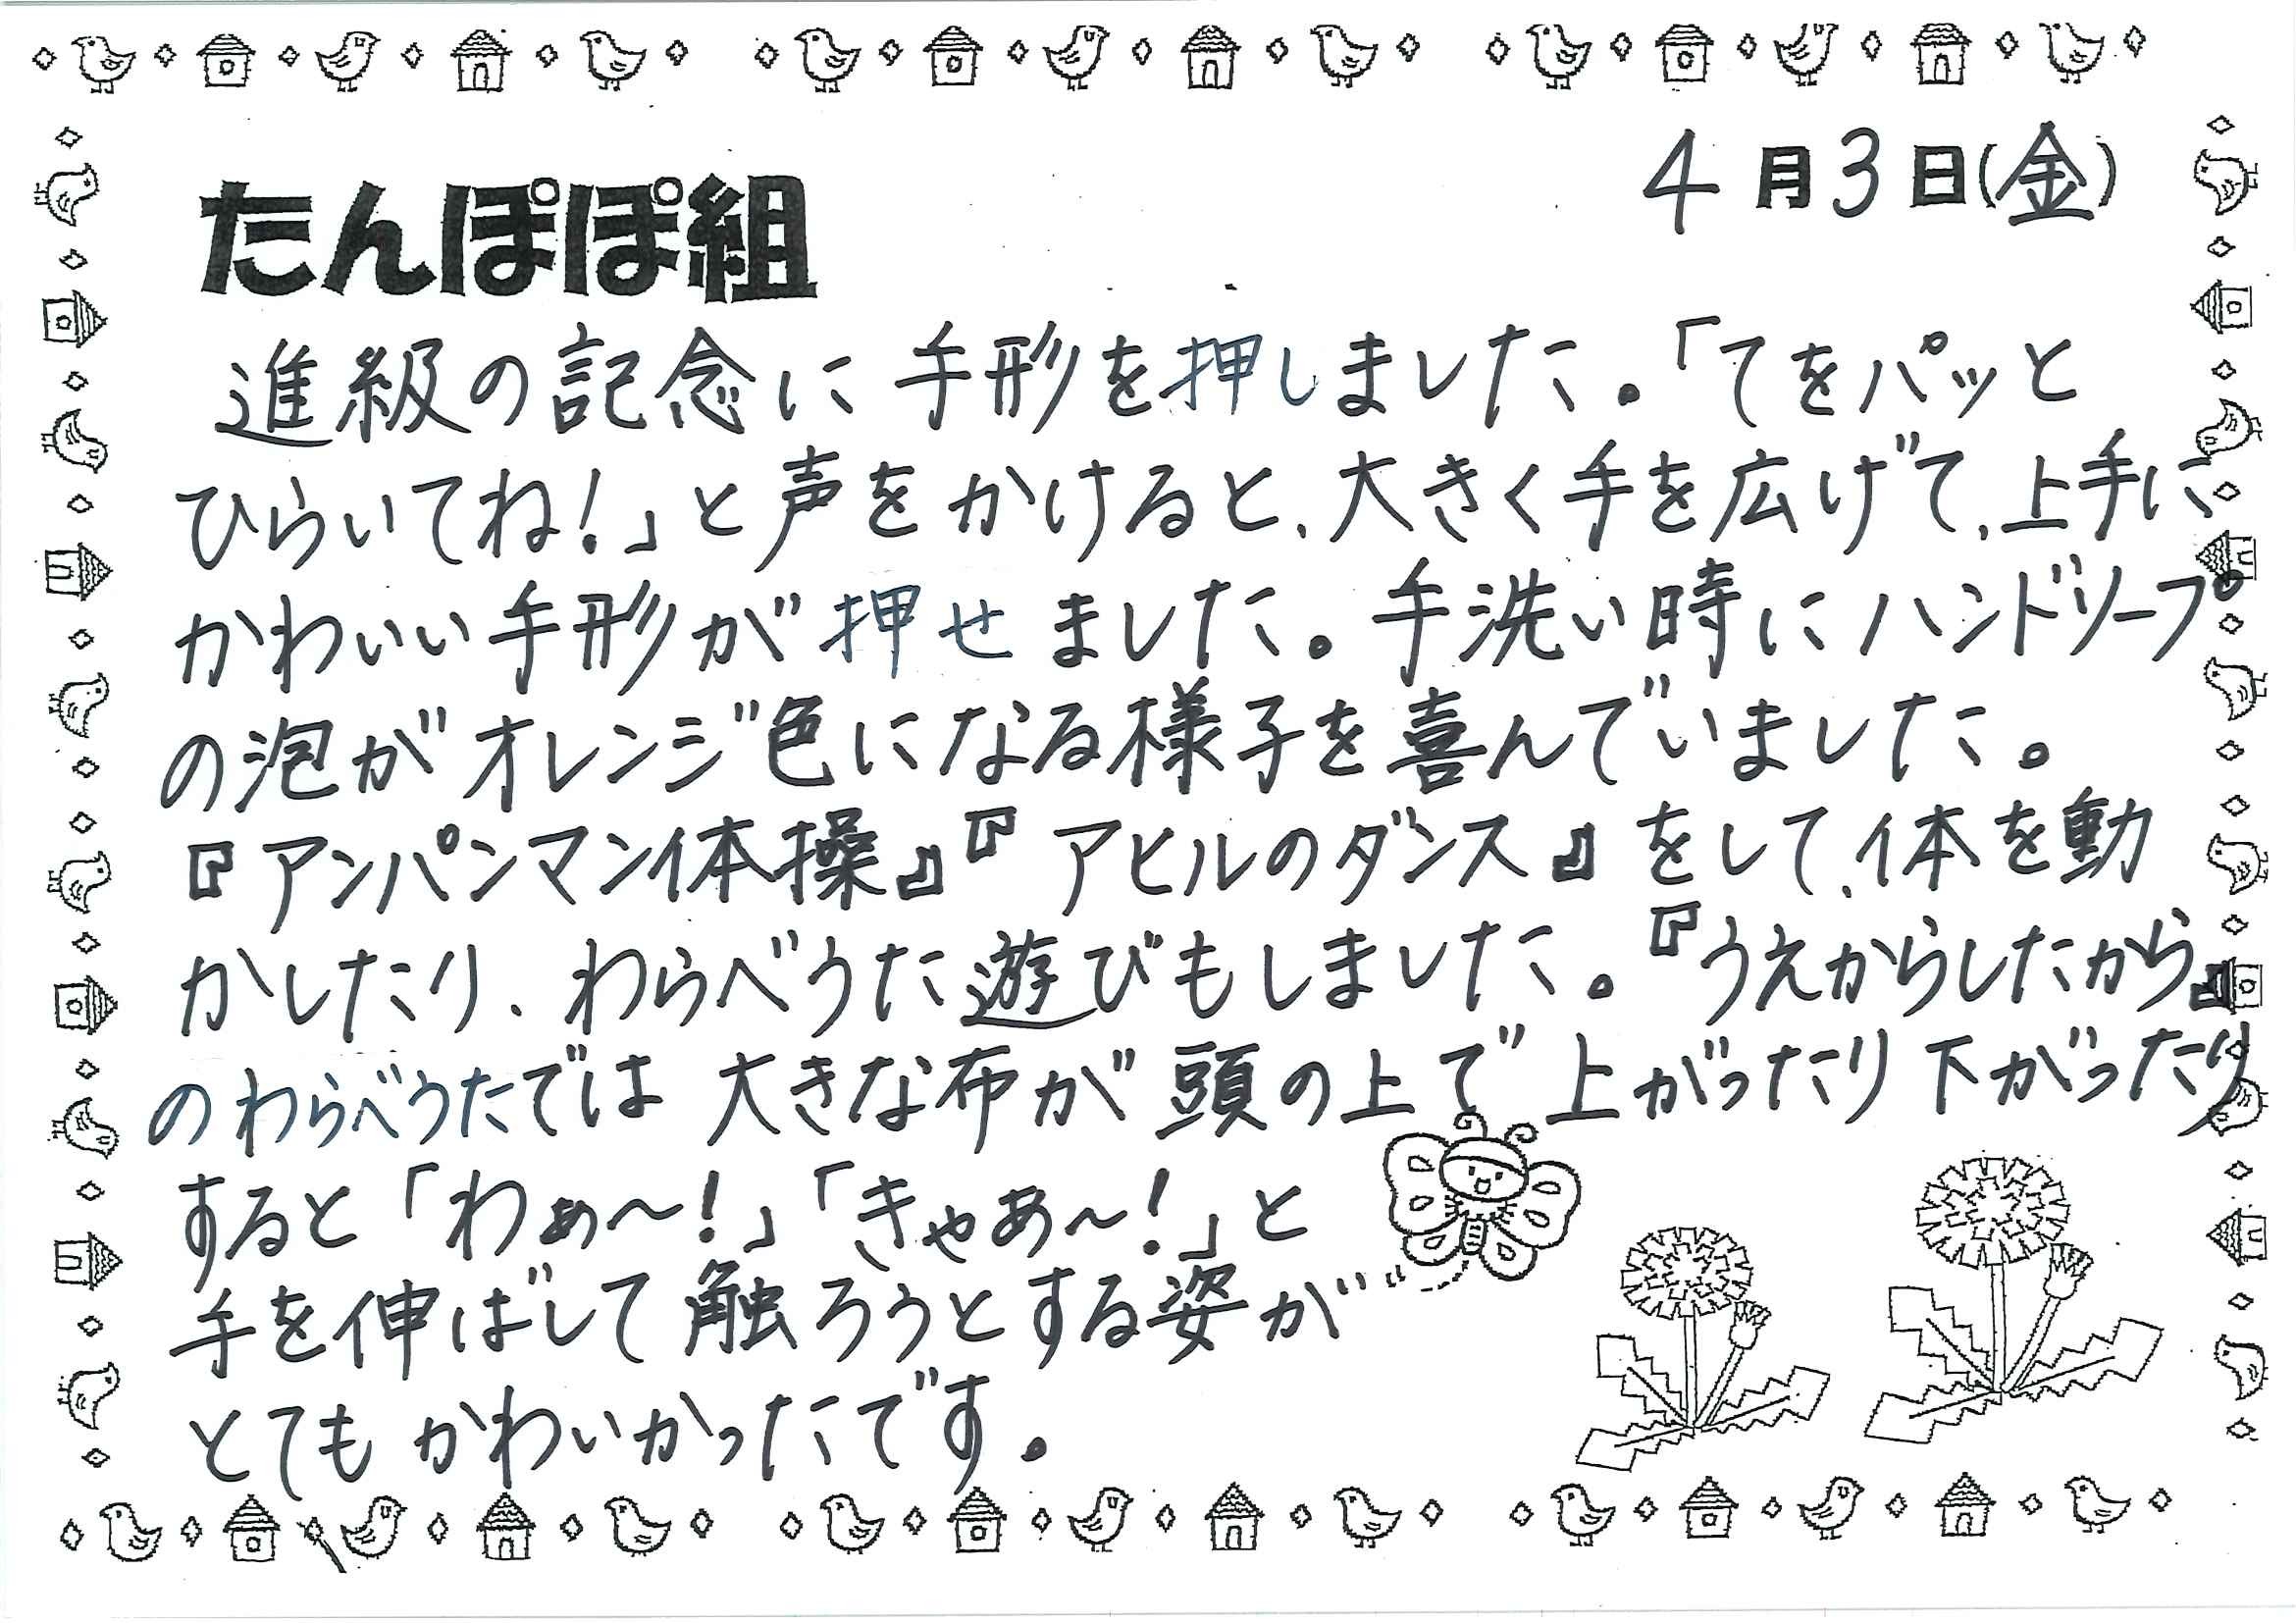 4月3日(金)
たんぽぽ組
進級の記念に手形を押しました。「てをパッと
ひらいてね!」と声をかけると、大きく手を広げて、上手に
かわいい手形が押せました。手洗い時にハンドソープ
の泡がオレンジ色になる様子を喜んでいました。
『アンパンマン体操』『アヒルのダンス』をして、体を動
かしたり、わらべうた遊びもしました。『うえからしたから』
のわらべうたでは大きな布が頭の上で上がったり下がったり
すると「わぁ〜!」「きゃあ〜!」と
手を伸ばして触ろうとする姿が
とてもかわいかったです。